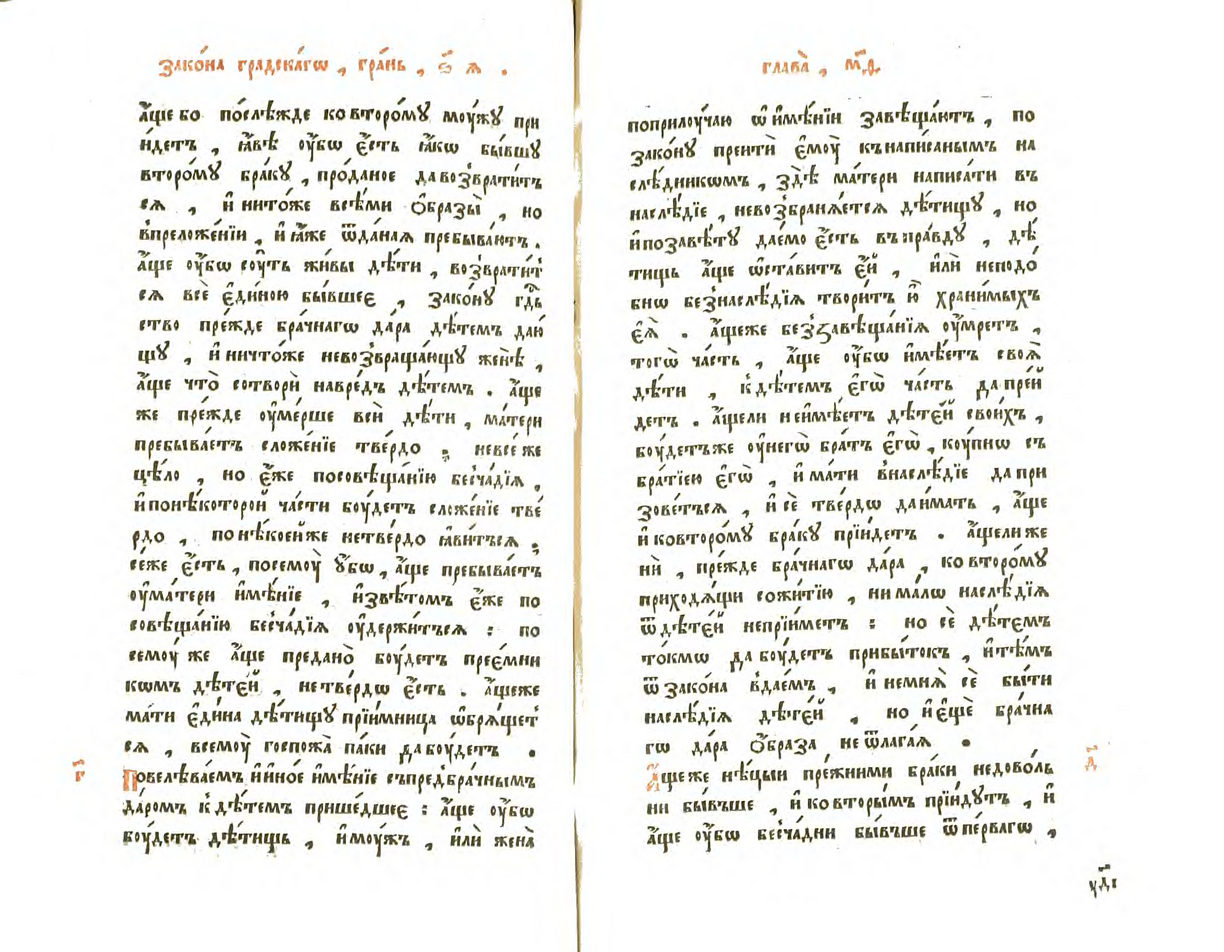 зако́на градска́гѡ , гра́нь , ѕ҃ ѧ .
а҆́ще бо по́слѣжде ко второ́мꙋ моу́жꙋ при
и́детъ , ꙗ҆́вѣ оу҆́бѡ є҆́сть ꙗ҆́кѡ бы́вшꙋ
второ́мꙋ бра́кꙋ , про́даное да возврати́тъ
сѧ , и҆ ничто́же всѣ́ми ѻ҆́бразы̀ , но
в̾преложе́нїи , и҆ ꙗ҆́же ѿда́наѧ пребыва́ютъ .
а҆́ще оу҆́бѡ соу́ть жи́вы дѣ́ти , возврати́т
сѧ всѐ є҆ди́ною бы́вшеє , зако́нꙋ гдⷭ҇ь
ство пре́жде бра́чнагѡ да́ра дѣ́темъ даю́
щꙋ , и҆ ничто́же невозвраща́ющꙋ женѣ̀ ,
а҆́ще что̀ сотворѝ навре́дъ дѣ́темъ . а҆́ще
же пре́жде оу҆ме́рше всѝ дѣ́ти , ма́тери
пребыва́етъ сложе́нїе тве́рдо ; невсе́ же
цѣ́ло , но є҆́же посовѣща́нїю бесча́дїѧ ,
и҆ понѣ́которой ча́сти боу́детъ сложе́нїе тве́
рдо , по нѣ́коей же нетве́рдо ꙗ҆ви́тьсѧ ;
се́же є҆́сть , посемоу̀ ᲂу҆́бѡ , а҆́ще пребыва́етъ
оу҆ма́тери и҆мѣ́нїе , и҆звѣ́томъ є҆́же по
совѣща́нїю бесча́дїѧ оу҆держи́тьсѧ : по
семоу́ же а҆́ще предано̀ боу́детъ прее́мни
кѡмъ дѣте́й , нетве́рдѡ є҆́сть . а҆́щеже
ма́ти є҆ди́на дѣ́тищꙋ прїи́мница ѡ҆брѧ́щет
сѧ , всемоу̀ госпожа̀ па́ки да боу́детъ .
г҃
Повелѣва́емъ и҆ и҆но́е и҆мѣ́нїе съпредбра́чнымъ
да́ромъ к̾ дѣ́темъ прише́дшеє : а҆́ще оу҆́бѡ
боу́детъ дѣ́тищь , и҆ моу́жъ , и҆лѝ жена̀
глава̀ , м҃д .
поприлоу́чаю ѡ҆ и҆мѣ́нїи завѣща́ютъ , по
зако́нꙋ преитѝ є҆моу̀ къ написа́нымъ на
слѣ́дникѡмъ , здѣ̀ ма́тери написа́ти въ
наслѣ́дїе , невозбранѧ́етсѧ дѣ́тищꙋ , но
и҆ позавѣ́тꙋ дае́мо є҆́сть въ пра́вдꙋ , дѣ́
тищь а҆́ще ѡ҆ста́витъ є҆́й , и҆лѝ неподо́
бнѡ безнаслѣ́дїѧ твори́тъ ю҆̀ храни́мыхъ
є҆ѧ̀ . а҆́щеже беззавѣща́нїѧ оу҆́мретъ ,
тогѡ̀ ча́сть , а҆́ще оу҆́бѡ и҆мѣ́етъ своѧ̀
дѣ́ти , к̾ дѣ́темъ є҆гѡ̀ ча́сть да прей
детъ . а҆́щели не и҆мѣ́етъ дѣте́й свои́хъ ,
боу́детъ же оу҆ негѡ̀ бра́тъ є҆гѡ̀ , коу́пнѡ съ
бра́тїею є҆гѡ̀ , и҆ ма́ти в̾наслѣ́дїе да при
зове́тьсѧ , и҆ сѐ тве́рдѡ да и҆́мать , а҆́ще
и҆ ковторо́мꙋ бра́кꙋ прїи́детъ . а҆́щели же
нѝ , пре́жде бра́чнагѡ да́ра , ко второ́мꙋ
приходѧ́щи сожи́тїю , ни ма́лѡ наслѣ́дїѧ
ѿ дѣте́й непрїи́метъ : но сѐ дѣ́темъ
то́кмѡ да боу́детъ прибы́токъ , и҆ тѣ́мъ
ѿ зако́на вдае́мъ , и҆ немнѧ̀ сѐ бы́ти
наслѣ́дїѧ дѣте́й , но и҆ є҆щѐ бра́чна
гѡ да́ра ѻ҆́браза не ѿлага́ѧ .
д҃
А҆́ще же нѣ́цыи пре́жними бра́ки недово́ль
ни бы́въше , и҆ ко вторы́мъ прїи́дꙋтъ , и҆
а҆́ще оу҆́бѡ бесча́дни бы́въше ѿ пе́рвагѡ ,
уд҃і